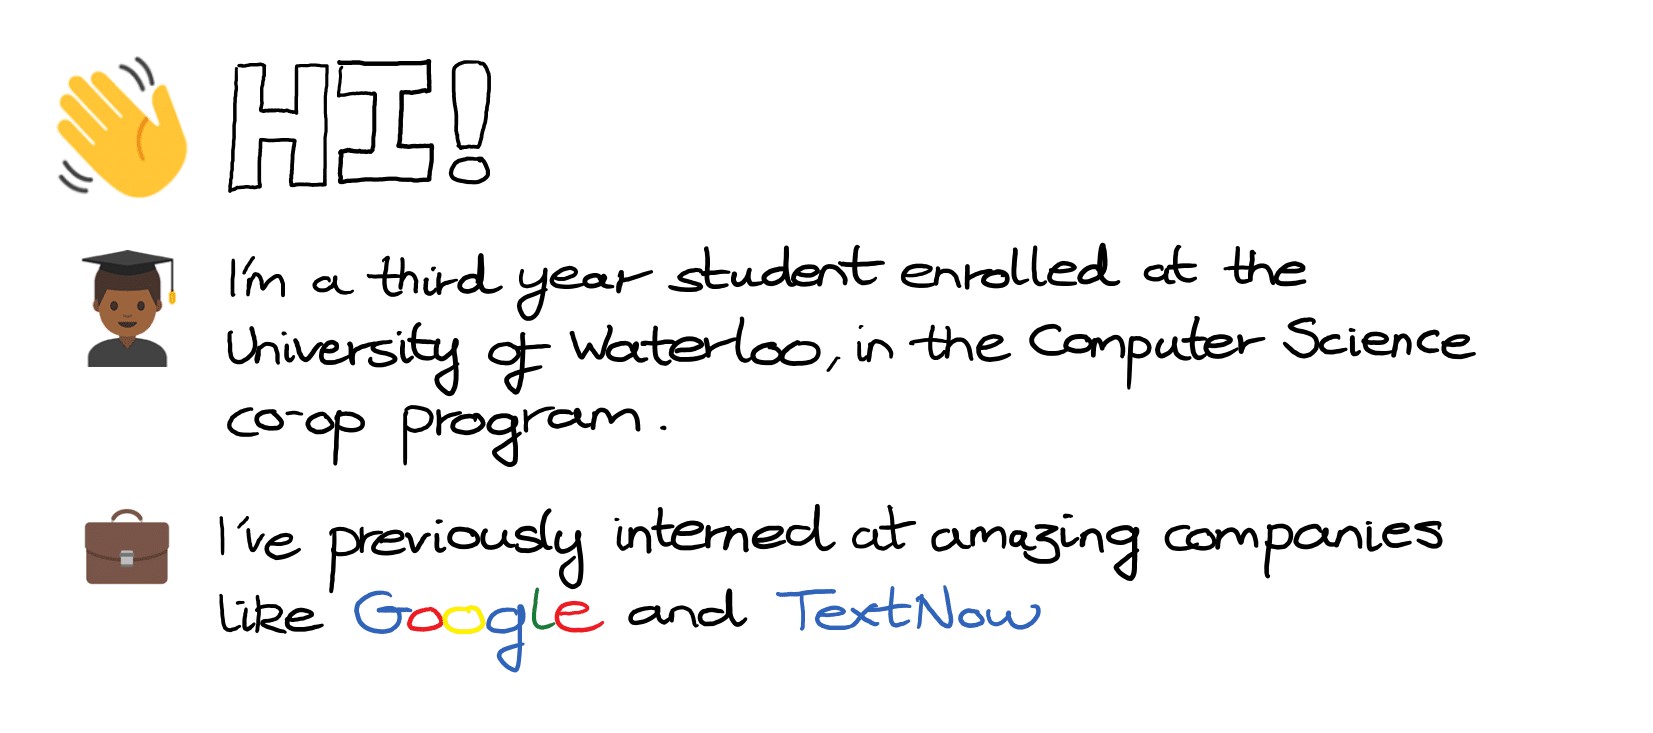 HI!
I'm a third year student enrolled at the
University of Waterloo, in the Computer Science
co-op program.
I've previously interned at amazing companies
like Google and TextNow